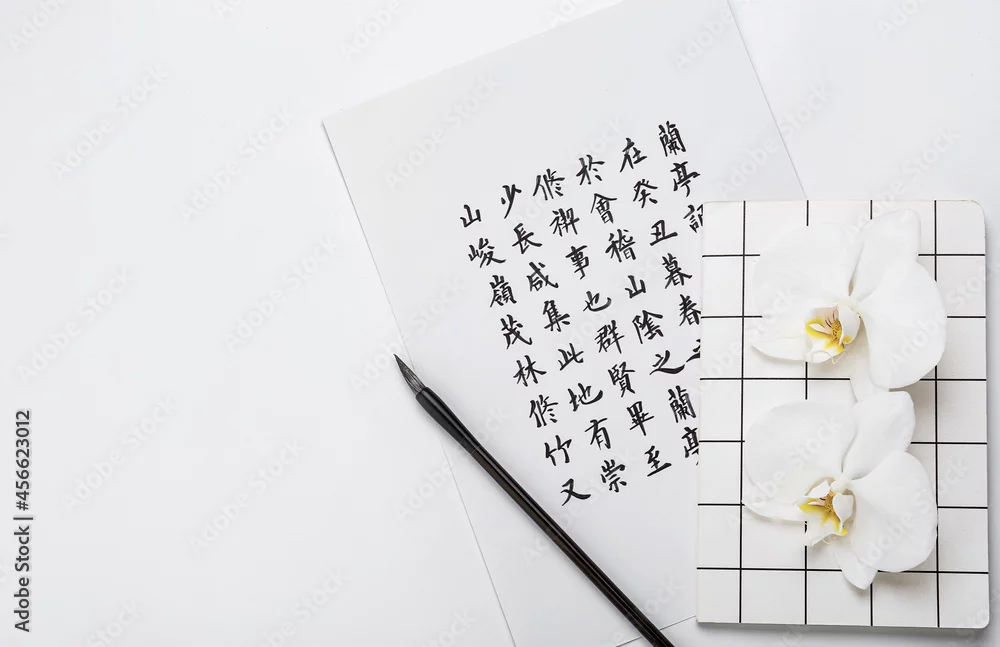 蘭亭
在癸丑暮春
於會稽山陰之蘭亭
修禊事也群賢畢至
少長咸集此地有崇
山峻嶺茂林修竹又
Adobe Stock | #456623012